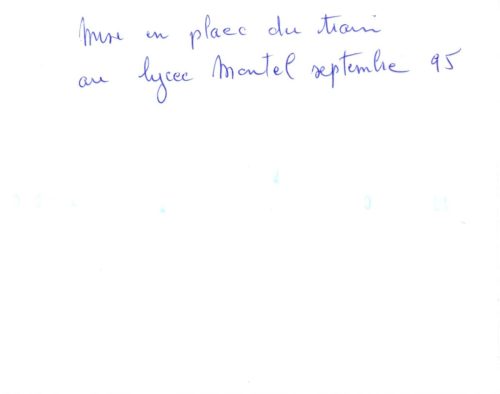 Mise en place du train
au lycee Montel septembre 95